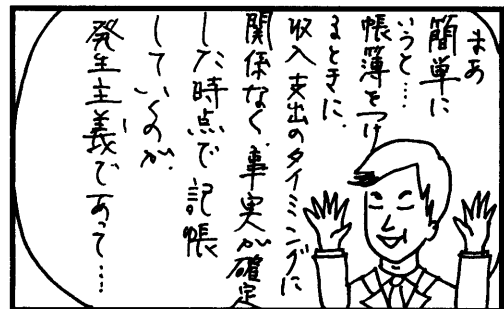 まあ
簡単に
いうと…
帳簿をつけ
るときに、
収入支出のタイミングに
関係なく、事実が確定
した時点で記帳
していくのが、
発生主義であって……